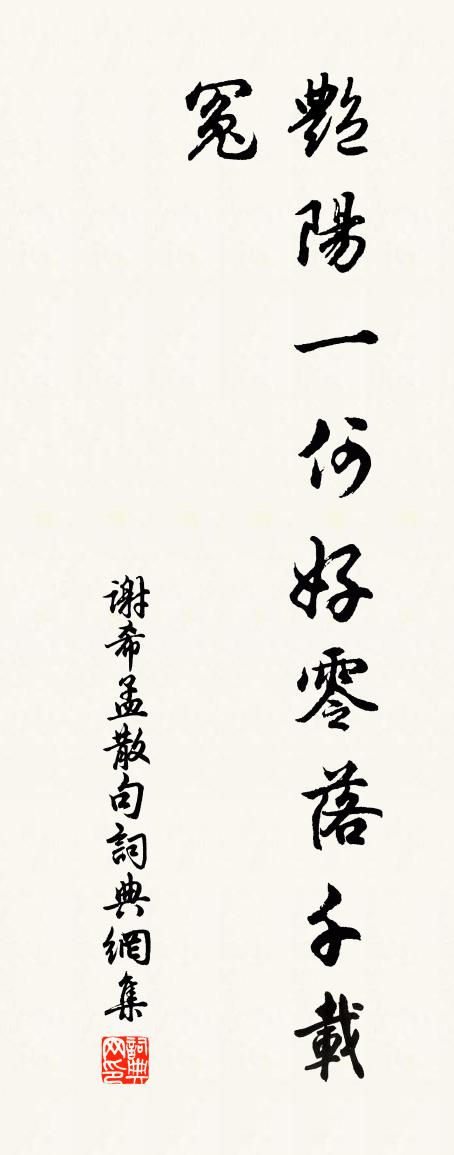 艷陽一何好零落千載
冤
謝希孟散句詞典網集
詞典网印